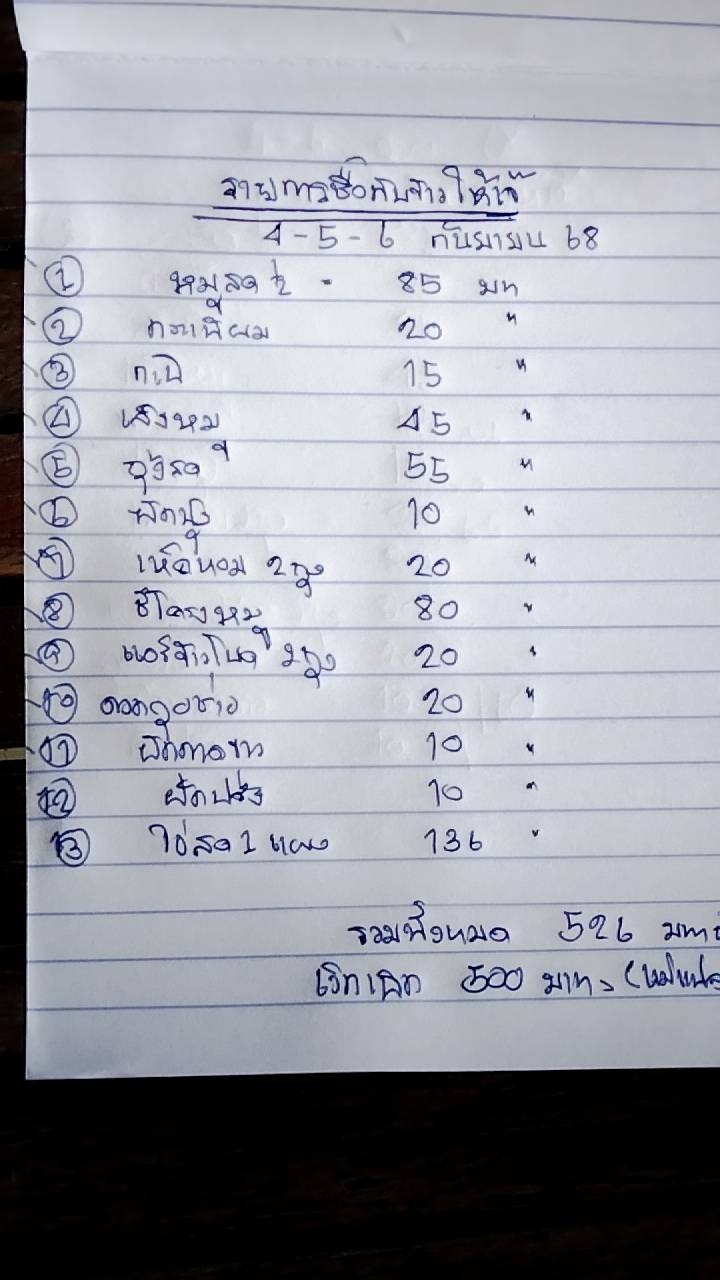 รายการซื้อกับข้าวให้เจ๊
4-5-6 กันยายน 68
① หมูสด ½ - 85 บาท
② กระเทียม 20 "
③ กะปิ 15 "
④ เส้งหมู 45 "
⑤ กุ้งสด 55 "
⑥ 10 "
⑦ เห็ดหอม 2 ถุง 20 "
⑧ ซี่โครงหมู 80 "
⑨ ข้าวโพด 2 ถุง 20 "
⑩ ดอกกุยช่าย 20 "
⑪ ผักกาดขาว 10 "
⑫ ผักปรัง 10 "
⑬ ไข่สด 1 แผง 136 "
รวมทั้งหมด 526 บาท
เบิกเงิน 500 บาท